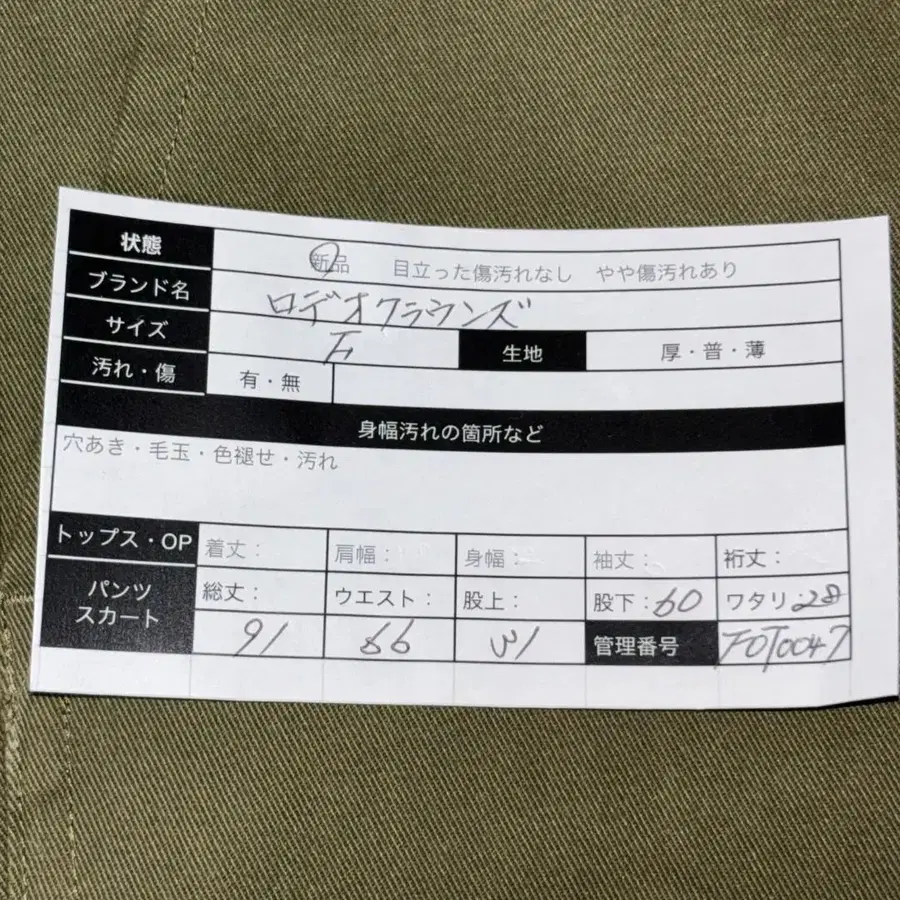 状態 新品 目立った傷汚れなし やや傷汚れあり
ブランド名 ロデオクラウンズ
サイズ 生地 厚・普・薄
汚れ・傷 有・無
身幅汚れの箇所など
穴あき・毛玉・色褪せ・汚れ
トップス・OP 着丈: 肩幅: 身幅: 袖丈: 裄丈:
パンツ スカート 総丈: ウエスト: 股上: 股下:60 ワタリ:28
91 66 31 管理番号 FOT0047